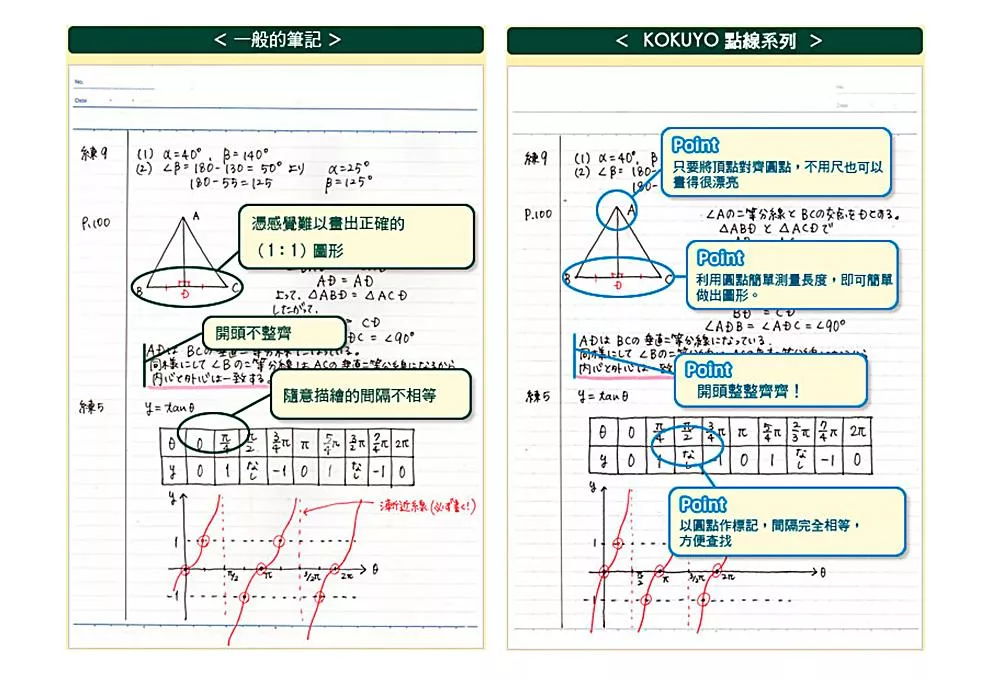 < 一般的筆記 >
No.
Date
練9
(1) α=40°, β=140°
(2) ∠β=180-130=50° より α=25°
180-55=125 β=125°
P.100
A
B
C
D
憑感覺難以畫出正確的
（1：1）圖形
AD=AD
よって、△ABD=△ACD
したがって、
=CD
DC=∠90°
開頭不整齊
ADは BCの垂直二等分線になっている。
同様にして ∠Bの二等分線は ACの垂直二等分線になるから
内心と外心は一致する。
隨意描繪的間隔不相等
練5
y=tanθ
θ 0 π/4 π/2 3/4π π 5/4π 3/2π 7/4π 2π
y 0 1 なし -1 0 1 なし -1 0
y
漸近線(必ず書く!)
1
π/2 π 3/2π 2π θ
-1
< KOKUYO 點線系列 >
No.
Date
練9
(1) α=40°, β
(2) ∠β=180-
180-
Point
只要將頂點對齊圓點，不用尺也可以
畫得很漂亮
P.100
A
B
C
D
∠Aの二等分線と BCの交点を Dとする。
△ABD と △ACD で
Point
利用圓點簡單測量長度，即可簡單
做出圖形。
BD=CD
∠ADB=∠ADC=∠90°
ADは BCの垂直二等分線になっている。
同様にして ∠Bの二等分
内心と外心は一致
Point
開頭整整齊齊！
練5
y=tanθ
θ 0 π/4 π/2 3/4π π 5/4π 2/3π 7/4π 2π
y 0 1 なし -1 0 1 なし -1 0
Point
以圓點作標記，間隔完全相等，
方便查找
y
1
π/2 π 3/2π 2π θ
-1